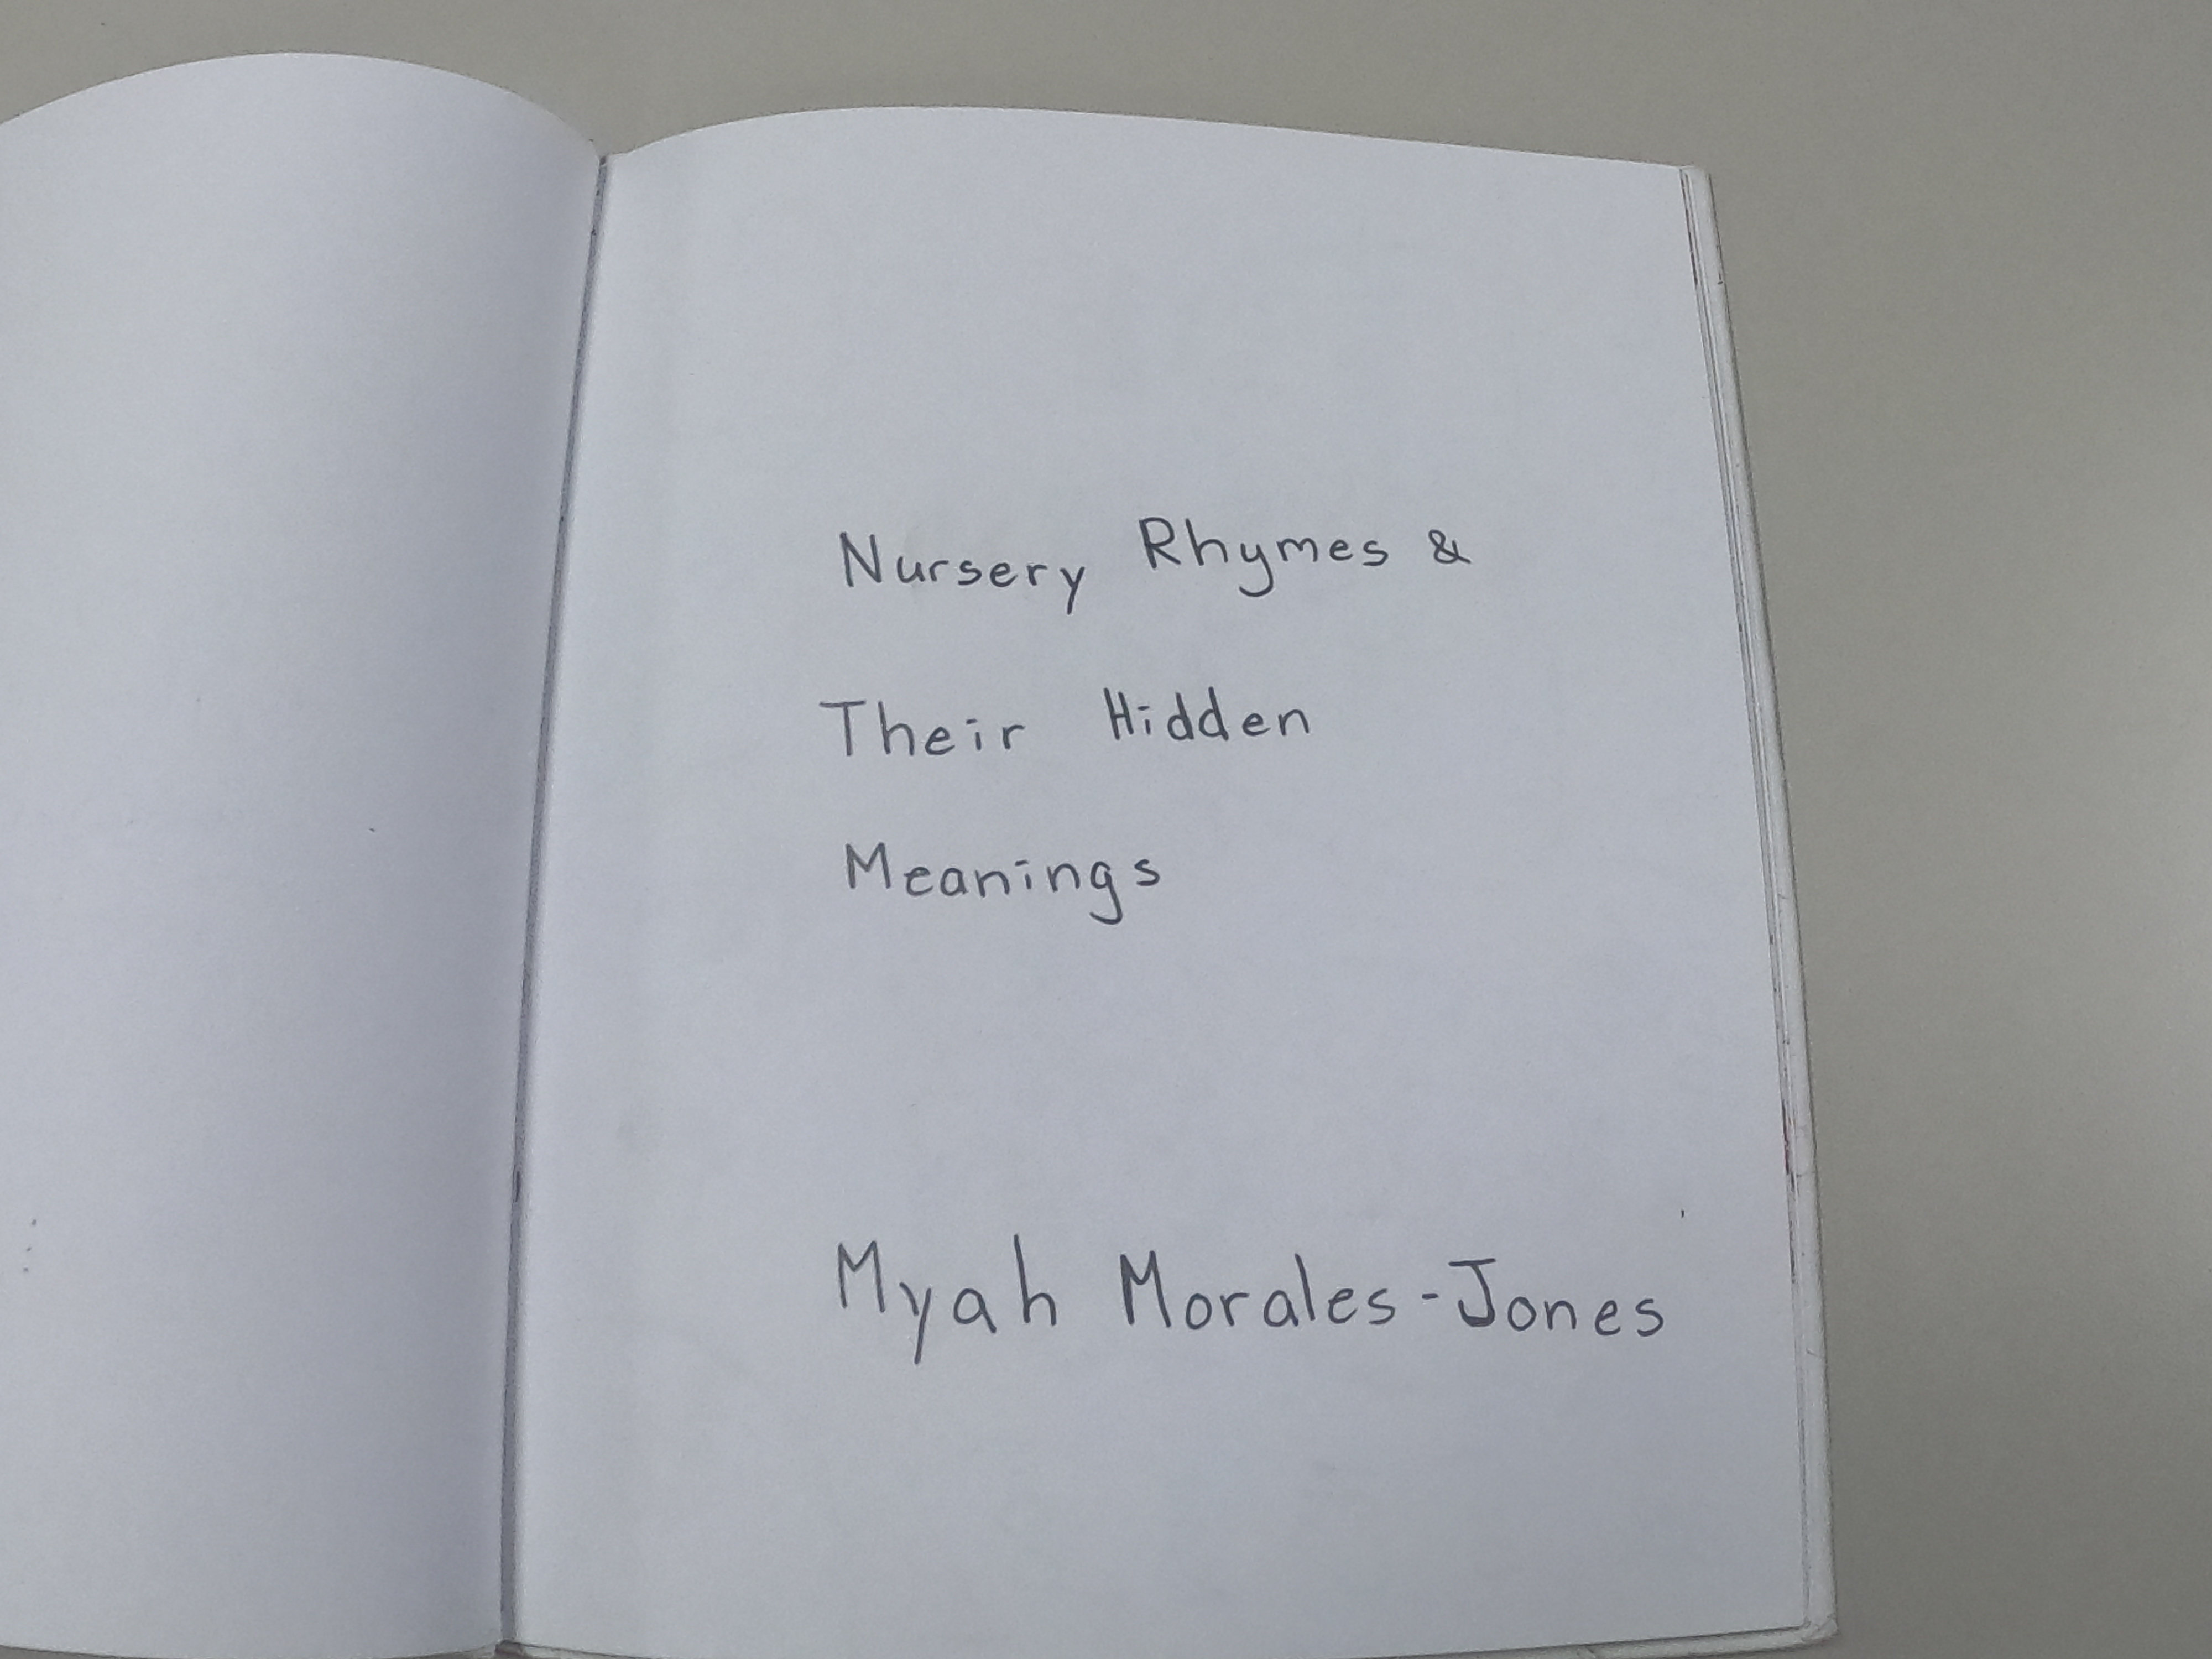 Nursery Rhymes &
Their Hidden
Meanings
Myah Morales-Jones